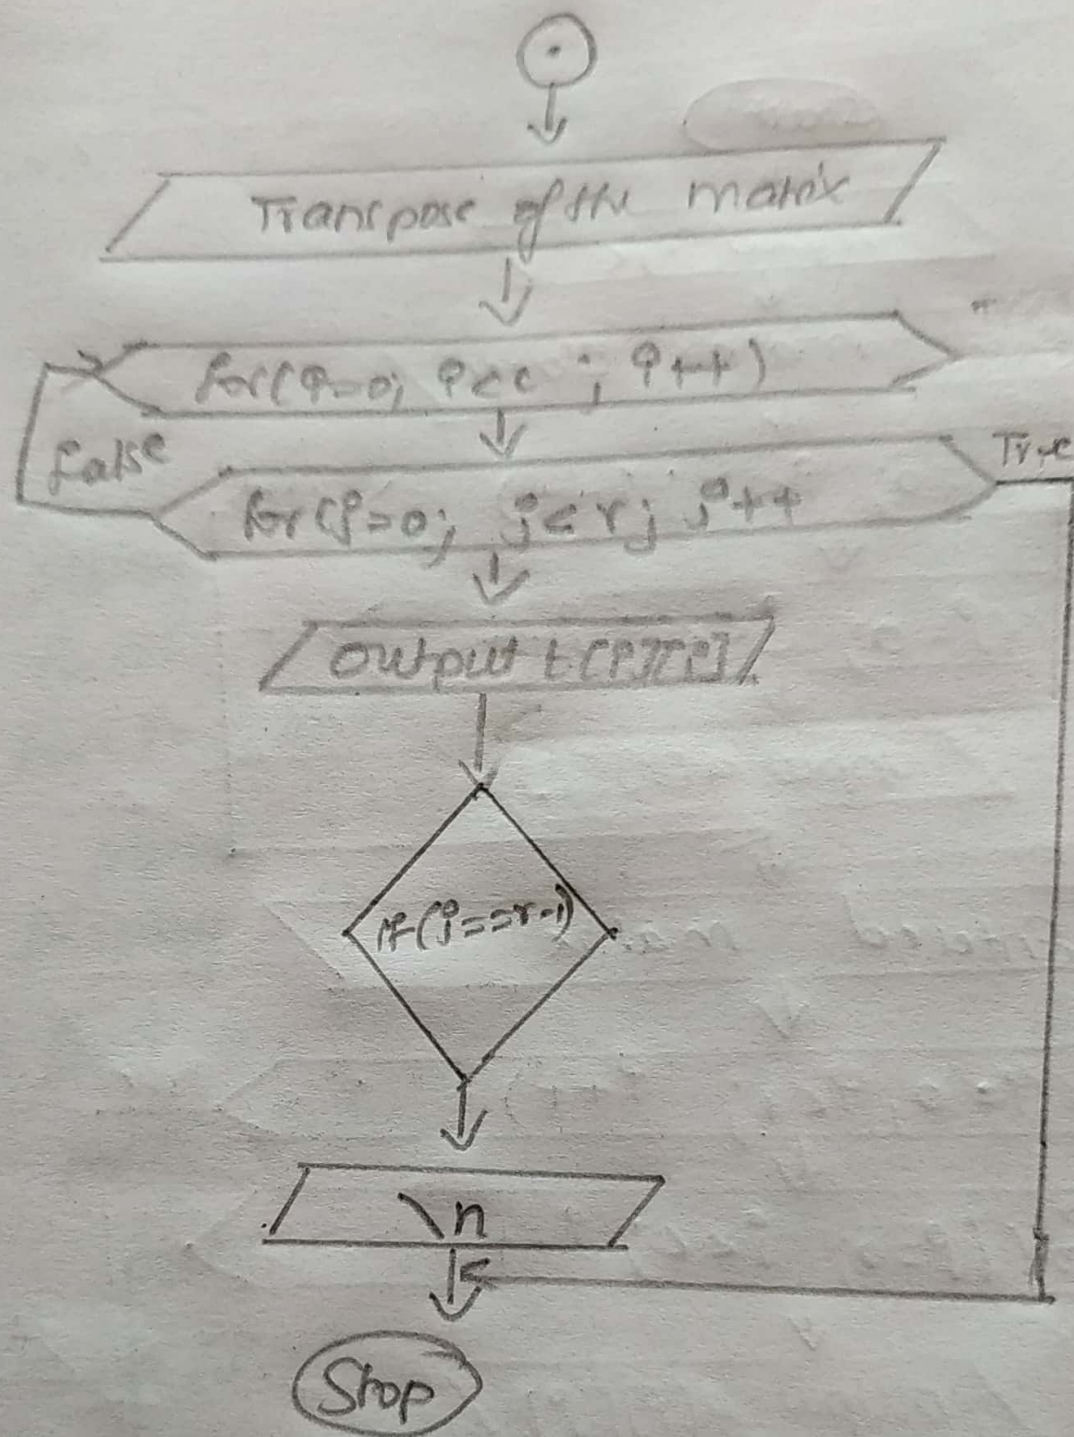 Transpose of the matrix
for(i=0; i<c ; i++)
false
True
for(j=0; j<r; j++
Output t[i][j]
if(j==r-1)
\n
Stop